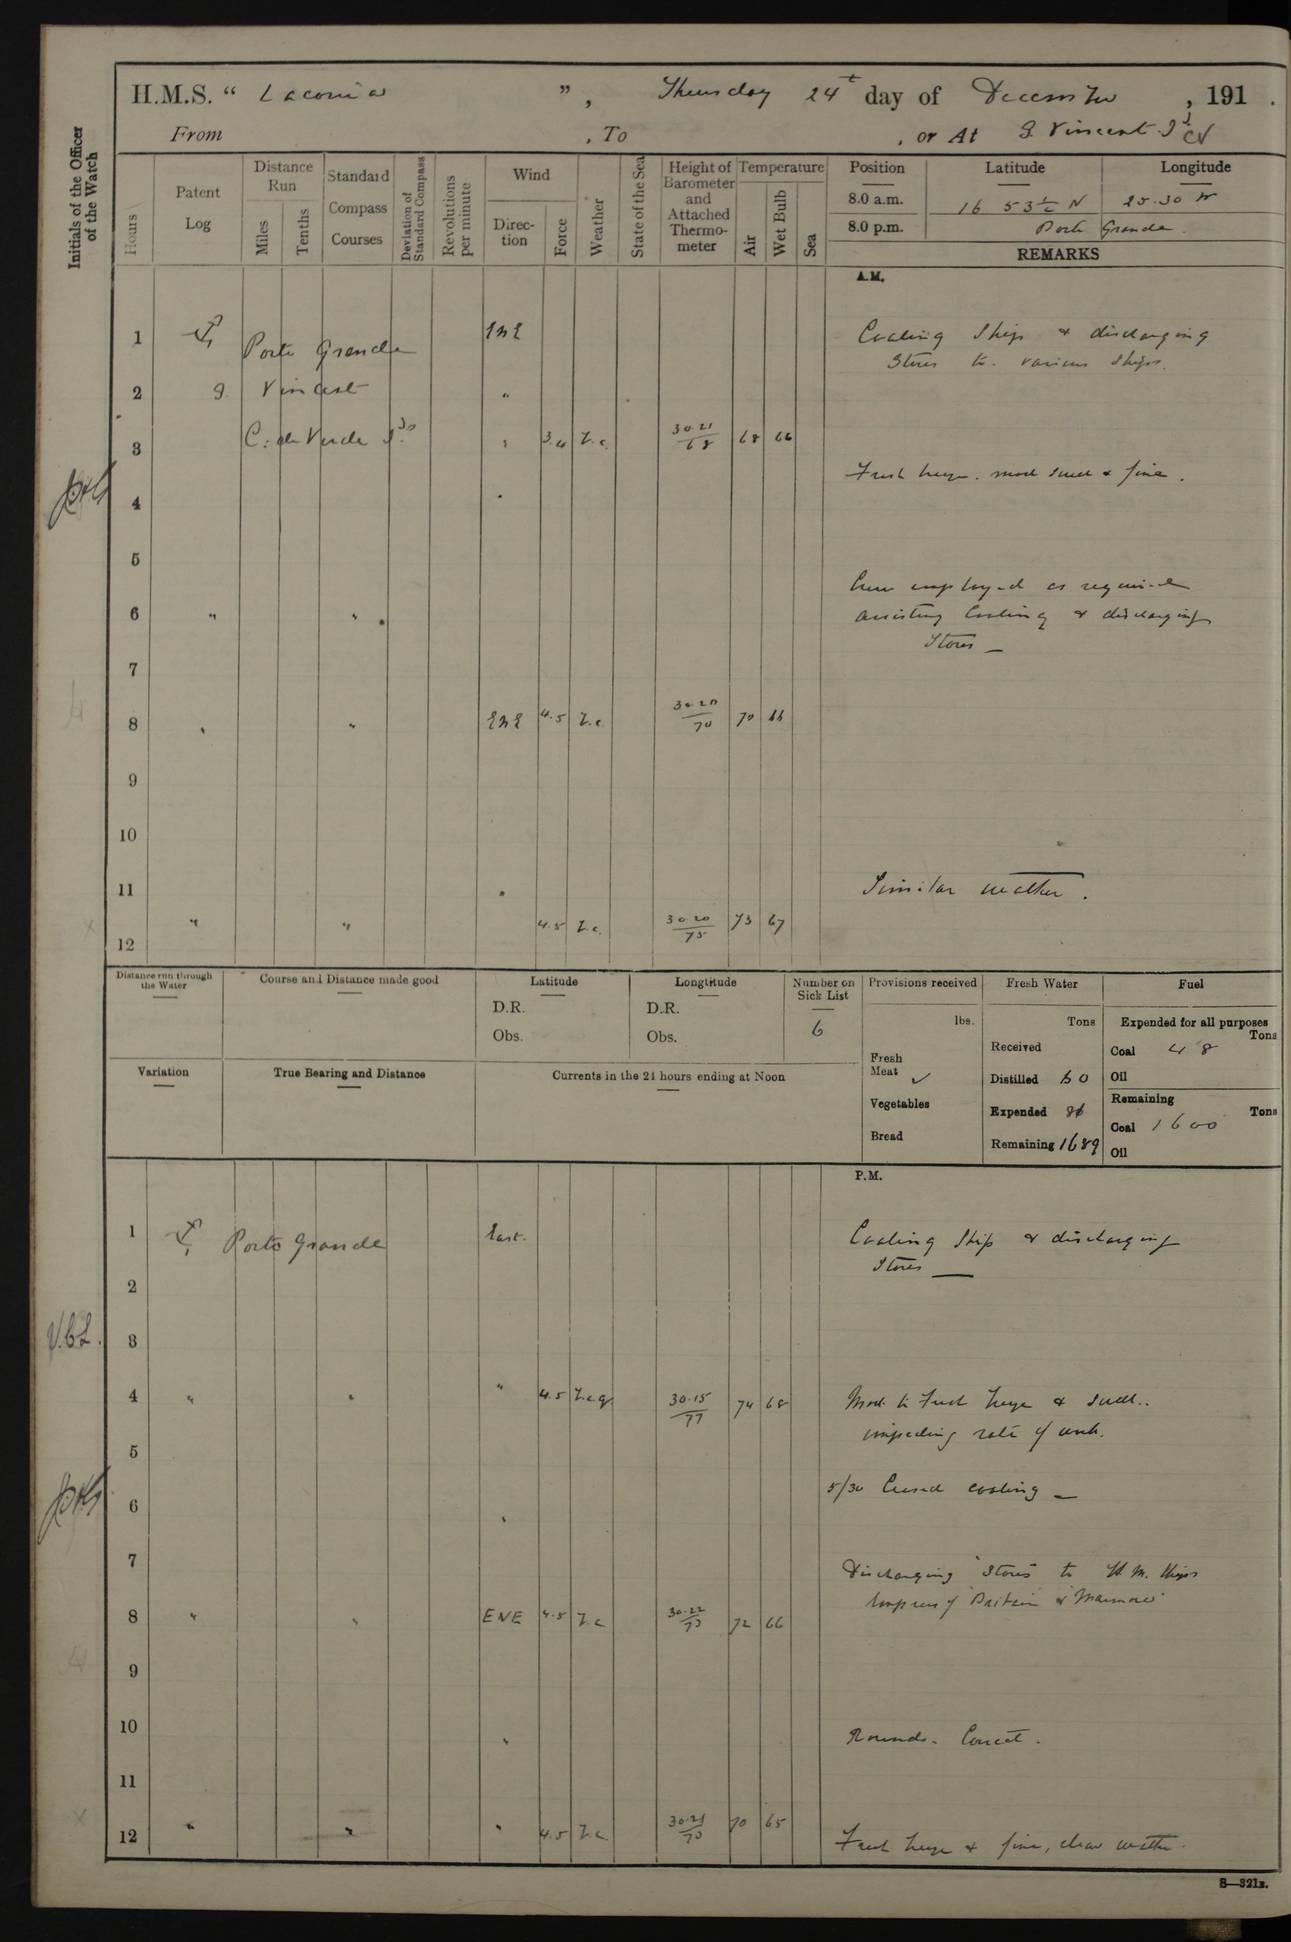 H.M.S. “ Laconia ”, Thursday 24t day of December, 191 .
From , To , or At S. Vincent Id CV
Initials of the Officer of the Watch
Hours
Patent Log
Distance Run
Miles
Tenths
Standard Compass Courses
Deviation of Standard Compass
Revolutions per minute
Wind
Direction
Force
Weather
State of the Sea
Height of Barometer and Attached Thermometer
Temperature
Air
Wet Bulb
Sea
Position Latitude Longitude
8.0 a.m. 16 53½ N 25.30 W
8.0 p.m. Porto Grande
REMARKS
A.M.
1 Porto Grande ENE Coaling Ship & discharging
Stores to various ships.
2 S. Vincent "
3 C. de Verde Ids " 3.4 68 66
30.21
68
Fresh breeze. mod swell & fine.
4 "
5
Crew employed as required
6 " " assisting Coaling & discharging
Stores —
7
8 " " ENE 4.5 b.c. 70 66
30.20
70
9
10
11 " Similar weather.
12 " " 4.5 b.c. 30.20 73 67
75
Distance run through the Water
Course and Distance made good
Latitude
D.R.
Obs.
Longtitude
D.R.
Obs.
Number on Sick List
6
Provisions received
lbs.
Fresh Meat ✓
Vegetables
Bread
Fresh Water
Tons
Received
Distilled 60
Expended 86
Remaining 1689
Fuel
Expended for all purposes
Tons
Coal 48
Oil
Remaining
Tons
Coal 1600
Oil
Variation
True Bearing and Distance
Currents in the 24 hours ending at Noon
P.M.
1 Porto Grande East. Coaling Ship & discharging
Stores —
2
V.C.L.
3
4 " " " 4.5 b.c.q. 30.15 74 68 Mod. to Fresh breeze & swell..
77
impeding rate of work.
5
5/30 Ceased coaling —
6 "
7
Discharging Stores to H.M. Ships
8 " " ENE 4.5 b.c. 30.22 72 66 Empress of Britain &
9
10 " Rounds. Correct.
11
12 " " " 4.5 b.c. 30.21 70 65
70
Fresh breeze & fine, clear weather.
S—321z.